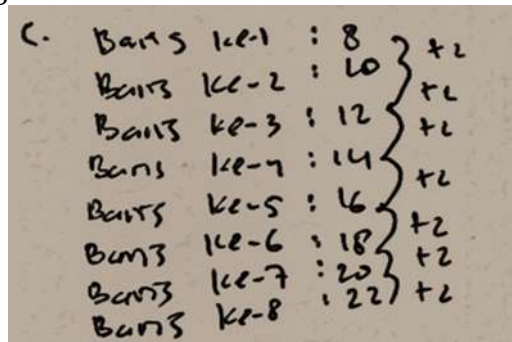 C. Baris ke-1 : 8
Baris ke-2 : 10
Baris ke-3 : 12
Baris ke-4 : 14
Baris ke-5 : 16
Baris ke-6 : 18
Baris ke-7 : 20
Baris ke-8 : 22
+2
+2
+2
+2
+2
+2
+2